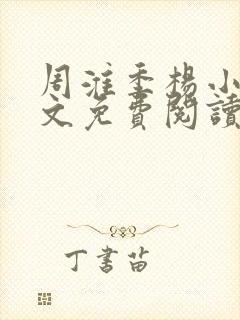 周淮季楊小
文免費閱讀
丁書苗